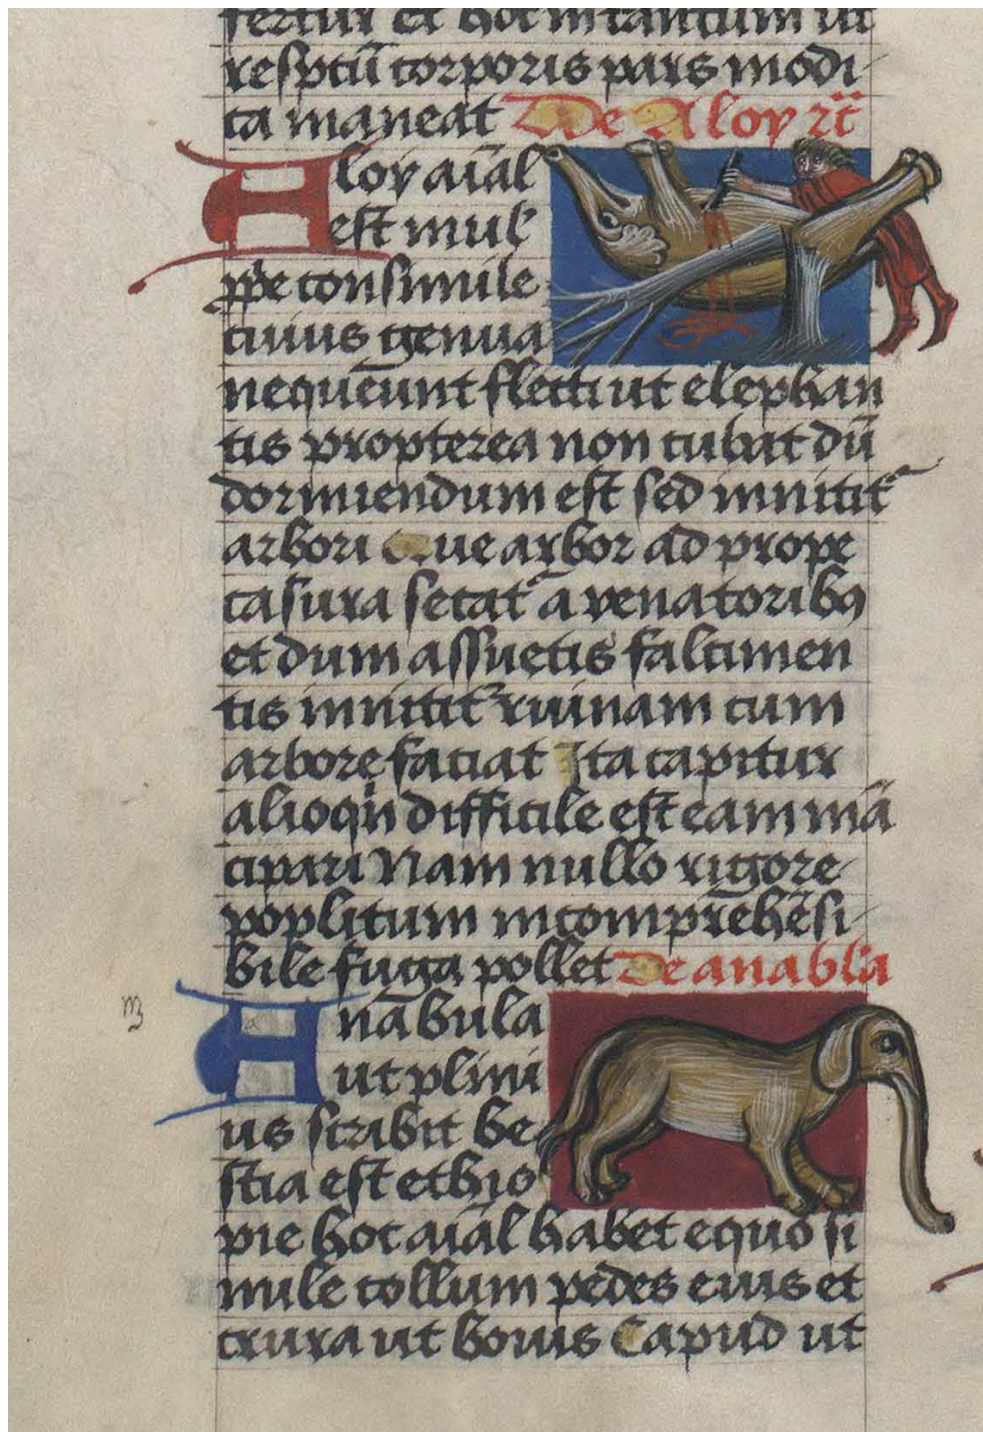 fertur et hoc in tantum ut
respctū corporis pars modi
ca maneat De Aloy rc̄
Aloy aīal
est mul
ppe consimile
cuius genua
nequeunt flecti ut elephan
tis propterea non cubat dū
dormiendum est sed innitit
arbori Que arbor ad prope
casura secat a venatoribꝯ
et dum assuetis falcimen
tis innitit ruinam cum
arbore faciat Ita capitur
alioqn difficile est eam mā
cipari Nam nullo rigore
poplitum incomprehēsi
bile fuga pollet De anabla
Anābula
ut plini
us scribit be
stia est ethio
pie hoc aīal habet equo si
mile collum pedes eius et
crura ut bouis Capud ut